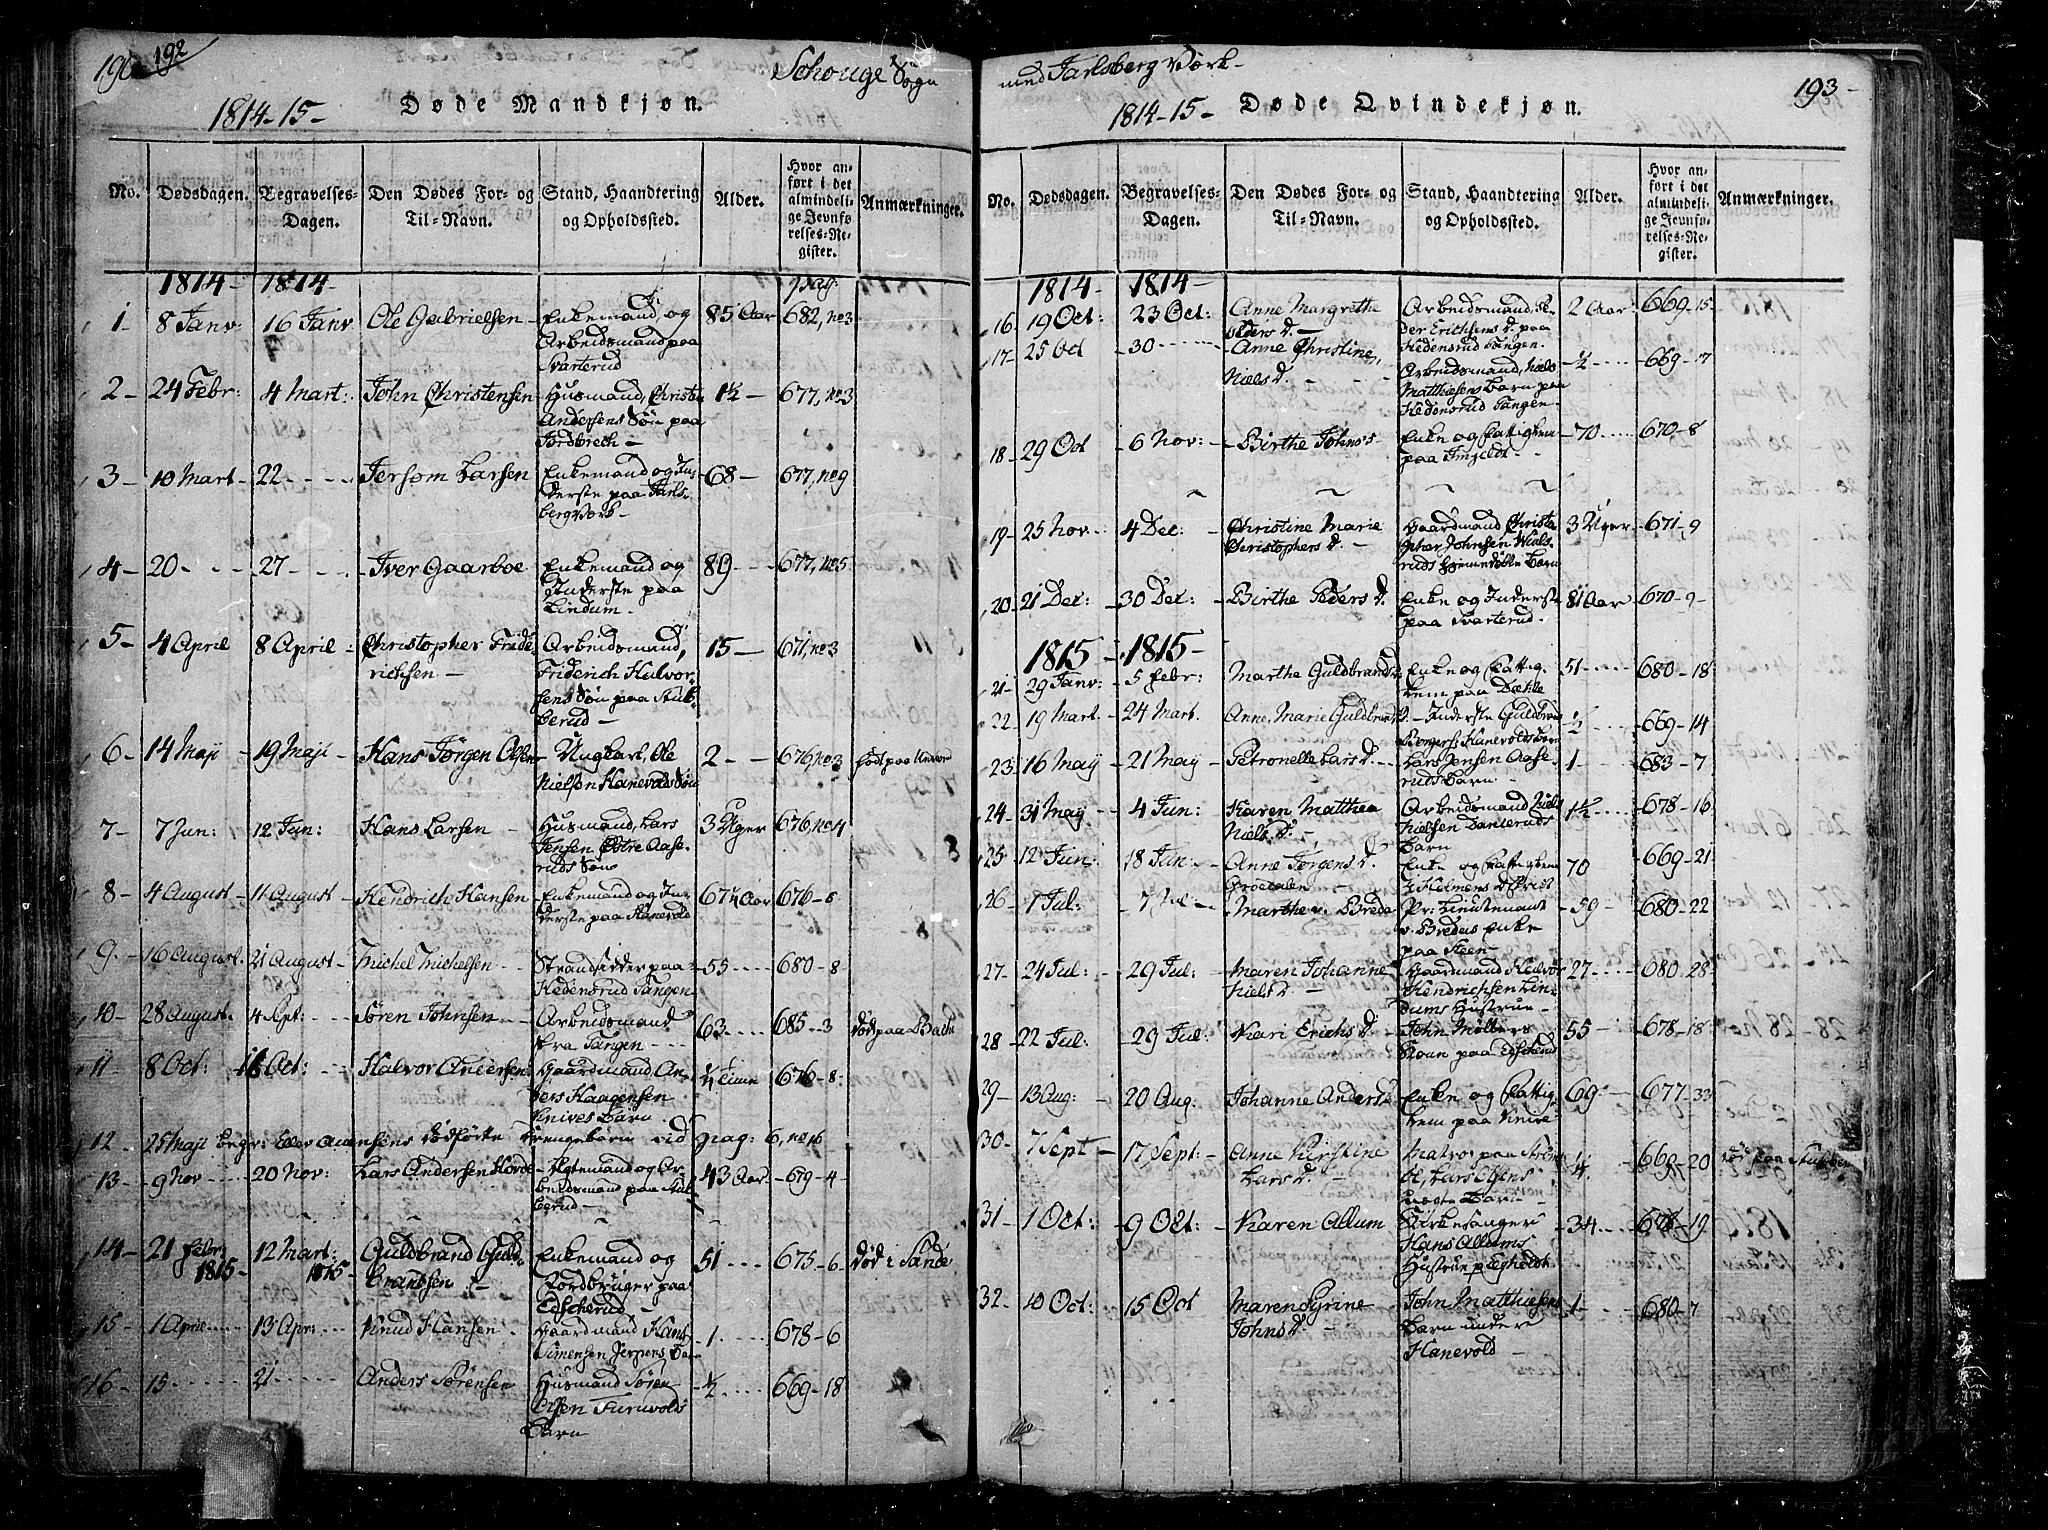 192
Schouge Sogn
1814-15-
Døde Mandkjøn.
No. Dødsdagen. Begravelses-Dagen. Den Dødes For- og Til-Navn. Stand, Haandtering og Opholdssted. Alder. Hvor anført i det almindelige Jevnførelses-Register. Anmærkninger.
1814- 1814- pag:
1- 8 Janv: 16 Janv Ole Gabrielsen- Enkemand og 85 Aar 682, no3
Arbeidsmand paa
Svarterud
2- 24 Febr: 4 Mart: John Christensen Husmand, Christen 1½- 677, no3
Andersens Søn paa
3- 10 Mart 22 Jersom Larsen Enkemand og In- 68- 677, no9
derste paa Jarls-
berg Værk-
4- 20 27 Iver Gaarboe Enkemand og 89 677, no5
Inderste paa
Lindum-
5- 4 April 8 April Christopher Fride- Arbeidsmand, 15- 671, no3
richsen- Friderich Halvor-
sens Søn paa Stub-
berud-
6- 14 Maji 19 Maji Hans Jørgen Olsen Ungkarl, Ole 2- 676, no3
Nielsen Hanevolds Søn
7- 7 Jun: 12 Jun: Hans Larsen Husmand, Lars 3 Uger 676, no4
Jensen Østre Aase-
ruds Søn
8- 4 August 11 August Hendrich Hansen Enkemand og In- 67¼ Aar 676-5
derste paa Hanevold
9- 16 August. 21 August Michel Michelsen Strandsidder paa 55 680-8
Hedensrud Tangen
10- 28 August. 4 Spt: Søren Johnsen Arbeidsmand 63 685-3
fra Tangen
11- 8 Oct: 16 Oct: Halvor Andersen Gaardmand An- ¼ Time 676-8
ders Haagensen
Knives Barn
12- 25 Maji begr: dødfødte Drengebarn vid pag: 6, no16
13- 9 Nov 20 Nov: Lars Andersen Ægtemand og Ar- 43 Aar 679-4
beidsmand paa Stub-
berud-
14- 21 Febr: 1815- 12 Mart: 1815- Guldbrand Guld- Enkemand og 51 675-6 død i Sande
brandsen Jordbruger paa
Edscherud-
15- 1 April 13 Apr: Knud Hansen Gaardmand Hans 1- 678-6
Simensen Jerpens Barn
16- 15 21 Anders Sørensen Husmand Søren ½ 669-18
Olsen Furuvolds
Barn
med Jarlsberg Værk-
193-
1814-15-
Døde Qvindekjøn.
No. Dødsdagen. Begravelses-Dagen. Den Dødes For- og Til-Navn. Stand, Haandtering og Opholdssted. Alder. Hvor anført i det almindelige Jevnførelses-Register. Anmærkninger.
1814- 1814-
16- 19 Oct: 23 Oct: Anne Margrethe Arbeidsmand, Pe- 2 Aar: 669-15
Peders D.- der Erichsens D. paa
Hedensrud Tangen.
17- 25 Oct 30 Anne Christine, Arbeidsmand, Niels ½ 669-7
Niels D. Matthiesens Barn paa
Hedensrud Tangen
18- 29 Oct 6 Nov: Birthe Johns D Enke og Fattiglem 70 670-8
19- 25 Nov 4 Dec: Christine Marie Gaardmand Christo- 3 Uger 671-9
Christophers D.- pher Johnsen
20- 21 Dec: 30 Dec: Birthe Peders D. Enke og Inderste 81 Aar 670-9-
paa Svarterud.
1815- 1815-
21- 29 Janv: 5 Febr: Marthe Guldbrands Enke og Fattig- 51 680-18
lem paa
22- 19 Mart. 24 Mart. Anne Marie Guldbrands D. Inderste Guldbrand ½ 669-14
Borgers: Hanevolds Barn
23- 16 May 21 May Petronelle Lars D. Lars Jensen Aase- 1 683-7
ruds Barn-
24- 31 May 4 Jun: Karen Mathea Arbeidsmand Niels 1½ 678-16
Niels D. Nielsen
Barn
25- 12 Jun: 18 Jun: Anne Jørgens D. Enke og Fattiglem 70 669-21
26- 1 Jul: 7 Jul: Marthe v. Breda Pr: Lieutenant 59- 680-22
v. Bredas Enke
paa Steen-
27- 24 Jul: 29 Jul: Maren Johanne Gaardmand Halvor 27 680-28
Niels D- Hendrichsen Lin-
dums Hustrue-
28- 22 Jul: 29 Jul: Kari Erichs D. John Møllers 55- 678-18
Kone paa Edscherud
29- 13 Aug: 20 Aug: Johanne Anders D Enke og Fattig- 69- 677-33
lem paa Knive
30- 7 Sept 17 Sept: Anne Kirstine Matros paa ¼ 669-20 død paa
Lars D.- Lars
Barn-
31- 1 Oct: 9 Oct: Karen Allum Kirkesanger 34 678-19
Hans Allums
Hustrue
32- 10 Oct: 15 Oct Maren Syrine John Matthiesens 1- 680-7
Johns D.- Barn under
Hanevold-